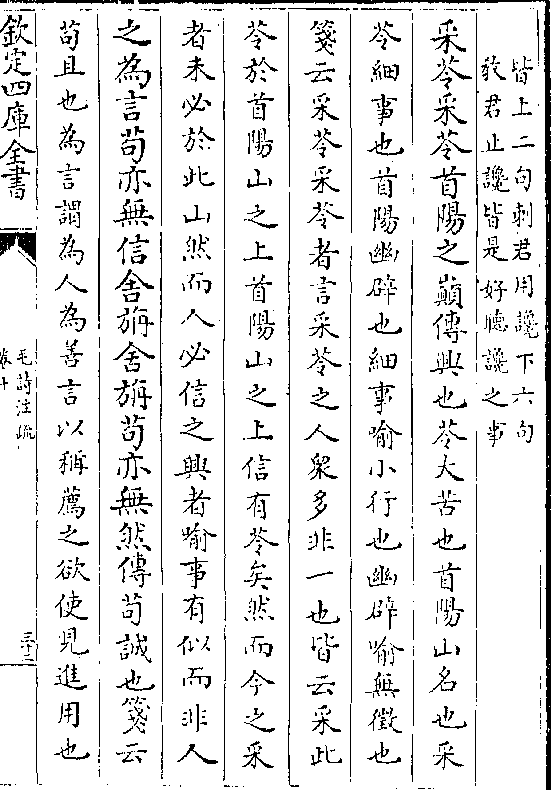 皆上二句刺君用讒下六句
教君止讒皆是好聽讒之事
采苓采苓首陽之巔傳興也苓大苦也首陽山名也采
苓細事也首陽幽辟也細事喻小行也幽辟喻無徵也
箋云采苓采苓者言采苓之人衆多非一也皆云采此
苓於首陽山之上首陽山之上信有苓矣然而今之采
者未必於此山然而人必信之興者喻事有似而非人
之為言苟亦無信舍旃舍旃苟亦無然傳苟誠也箋云
苟且也為言謂為人為善言以稱薦之欲使見進用也
欽定四庫全書
毛詩注疏
卷十
三十三